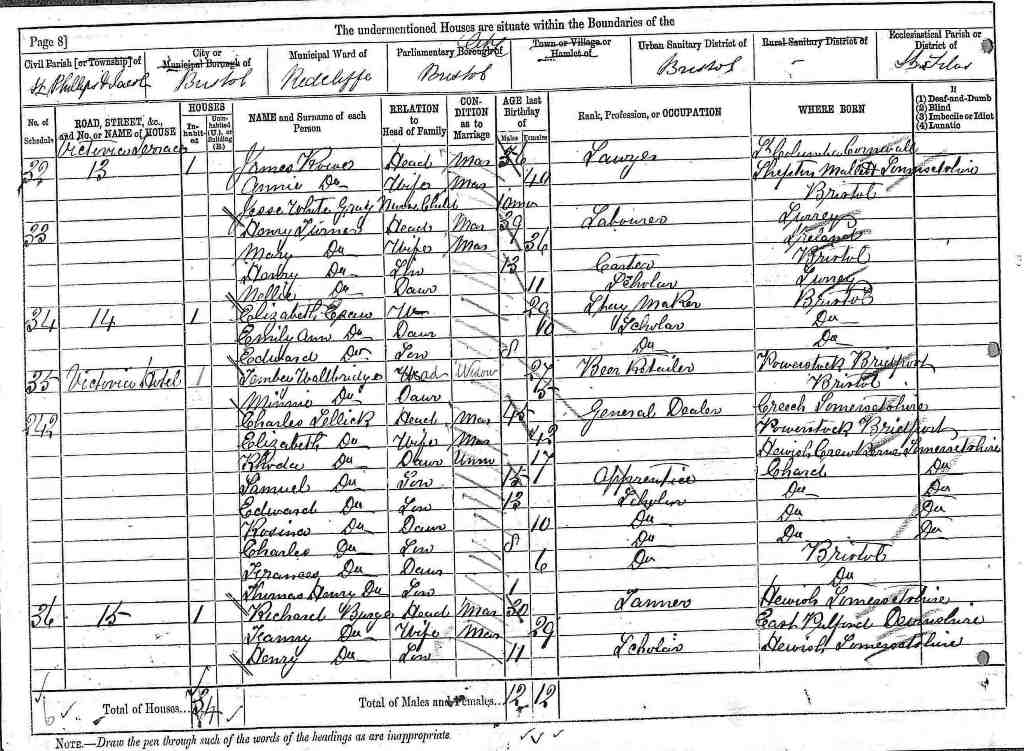 The undermentioned Houses are situate within the Boundaries of the
Page 8]
Civil Parish [or Township] of
St Phillips & Jacob
City or Municipal Borough of
Bristol
Municipal Ward of
Redcliffe
Parliamentary Borough of
City
Bristol
Town or Village or Hamlet of
Urban Sanitary District of
Bristol
Rural Sanitary District of
-
Ecclesiastical Parish or District of
No. of Schedule
ROAD, STREET, &c., and No. or NAME of HOUSE
HOUSES
Inhabited
Uninhabited (U.), or Building (B.)
NAME and Surname of each Person
RELATION to Head of Family
CONDITION as to Marriage
AGE last Birthday of
Males
Females
Rank, Profession, or OCCUPATION
WHERE BORN
If
(1) Deaf-and-Dumb
(2) Blind
(3) Imbecile or Idiot
(4) Lunatic
Victoria Terrace
32 13 1 James Rowe Head Mar 36 Cornwall
Annie Do Wife Mar 40 Somersetshire
Jesse White Gray Nurse Child 10 mos Bristol
33 Henry Head Mar 39 Labourer Surrey
Mary Do Wife Mar 36 Ireland
Henry Do Son 13 Bristol
Nellie Do Daur 11 Scholar Surrey
34 14 1 Elizabeth 29 Maker Bristol
Emily Ann Do Daur 10 Scholar Do
Edward Do Son 8 Do Do
35 Victoria Hotel 1 Walbridge Head Widow 37 Beer Retailer Powerstock Bridport
Minnie Do Daur Bristol
242 Charles Sellick Head Mar 45 General Dealer Creech Somersetshire
Elizabeth Do Wife Mar 42 Powerstock Bridport
Rhoda Do Daur Unm 17 Hewish Crewkerne Somersetshire
Samuel Do Son 15 Apprentice Chard Do
Edward Do Son 13 Scholar Do Do
Rosina Do Daur 10 Do Do Do
Charles Do Son 8 Do Do Do
Frances Do Daur 6 Do Bristol
Thomas Henry Do Son 1 Do
36 15 1 Richard Head Mar 30 Tanner Hewish Somersetshire
Do Wife Mar 29 East Devonshire
Henry Do Son 11 Scholar Hewish Somersetshire
Total of Houses... 4
Total of Males and Females... 12 12
NOTE.—Draw the pen through such of the words of the headings as are inappropriate.